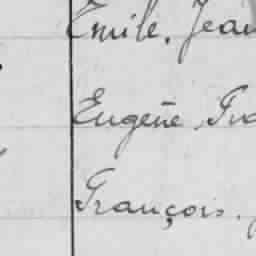 Emile. Jean
Eugène
François.